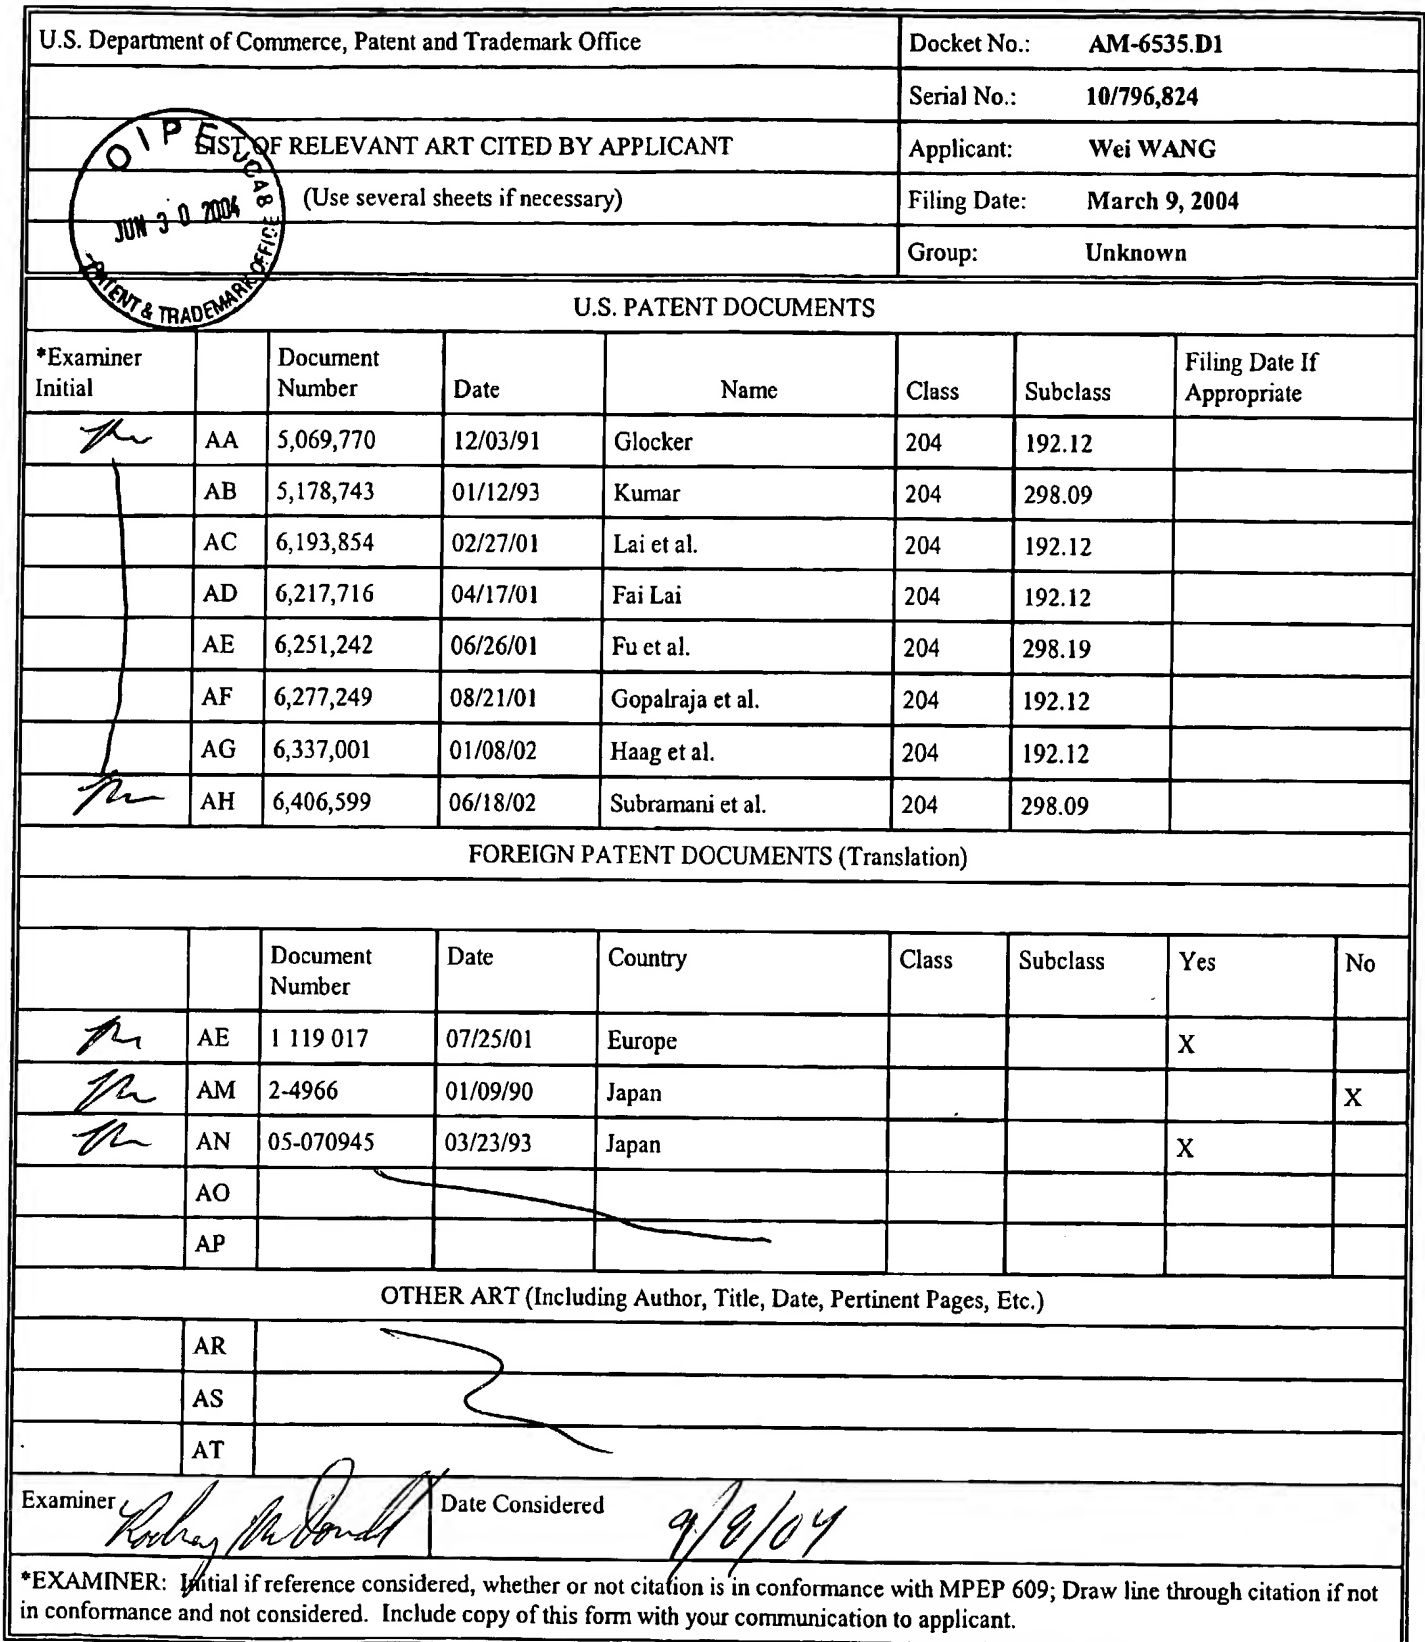 U.S. Department of Commerce, Patent and Trademark Office
Docket No.: AM-6535.D1
Serial No.: 10/796,824
LIST OF RELEVANT ART CITED BY APPLICANT
Applicant: Wei WANG
(Use several sheets if necessary)
Filing Date: March 9, 2004
Group: Unknown
OIPE JC48
JUN 30 2004
PATENT & TRADEMARK OFFICE
U.S. PATENT DOCUMENTS
*Examiner Initial Document Number Date Name Class Subclass Filing Date If Appropriate
AA 5,069,770 12/03/91 Glocker 204 192.12
AB 5,178,743 01/12/93 Kumar 204 298.09
AC 6,193,854 02/27/01 Lai et al. 204 192.12
AD 6,217,716 04/17/01 Fai Lai 204 192.12
AE 6,251,242 06/26/01 Fu et al. 204 298.19
AF 6,277,249 08/21/01 Gopalraja et al. 204 192.12
AG 6,337,001 01/08/02 Haag et al. 204 192.12
AH 6,406,599 06/18/02 Subramani et al. 204 298.09
FOREIGN PATENT DOCUMENTS (Translation)
Document Number Date Country Class Subclass Yes No
AE 1 119 017 07/25/01 Europe X
AM 2-4966 01/09/90 Japan X
AN 05-070945 03/23/93 Japan X
AO
AP
OTHER ART (Including Author, Title, Date, Pertinent Pages, Etc.)
AR
AS
AT
Examiner Rodney McDonald Date Considered 9/8/04
*EXAMINER: Initial if reference considered, whether or not citation is in conformance with MPEP 609; Draw line through citation if not
in conformance and not considered. Include copy of this form with your communication to applicant.